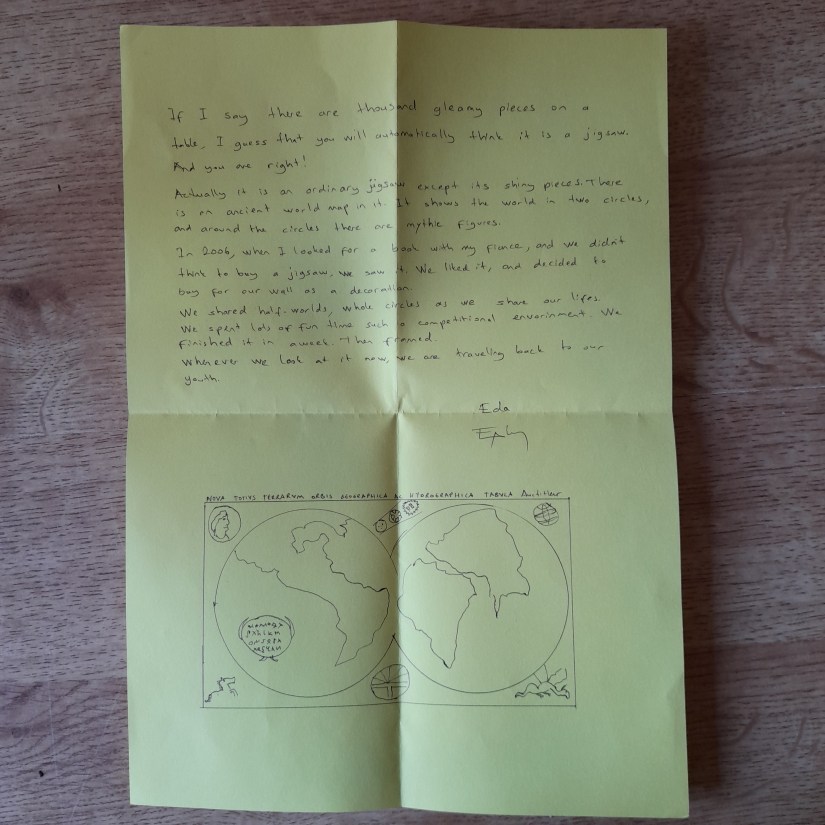 If I say there are thousand gleamy pieces on a
table, I guess that you will automatically think it is a jigsaw.
And you are right!
Actually it is an ordinary jigsaw except its shiny pieces. There
is an ancient world map in it. It shows the world in two circles,
and around the circles there are mythic figures.
In 2006, when I looked for a book with my fiance, and we didn't
think to buy a jigsaw, we saw it. We liked it, and decided to
buy for our wall as a decoration.
We shared half-worlds, whole circles as we share our lifes.
We spent lots of fun time such a competitional envorinment. We
finished it in a week. Then framed.
Whenever we look at it now, we are traveling back to our
youth.
Eda
NOVA TOTIUS TERRARUM ORBIS GEOGRAPHICA AC HYDROGRAPHICA TABULA